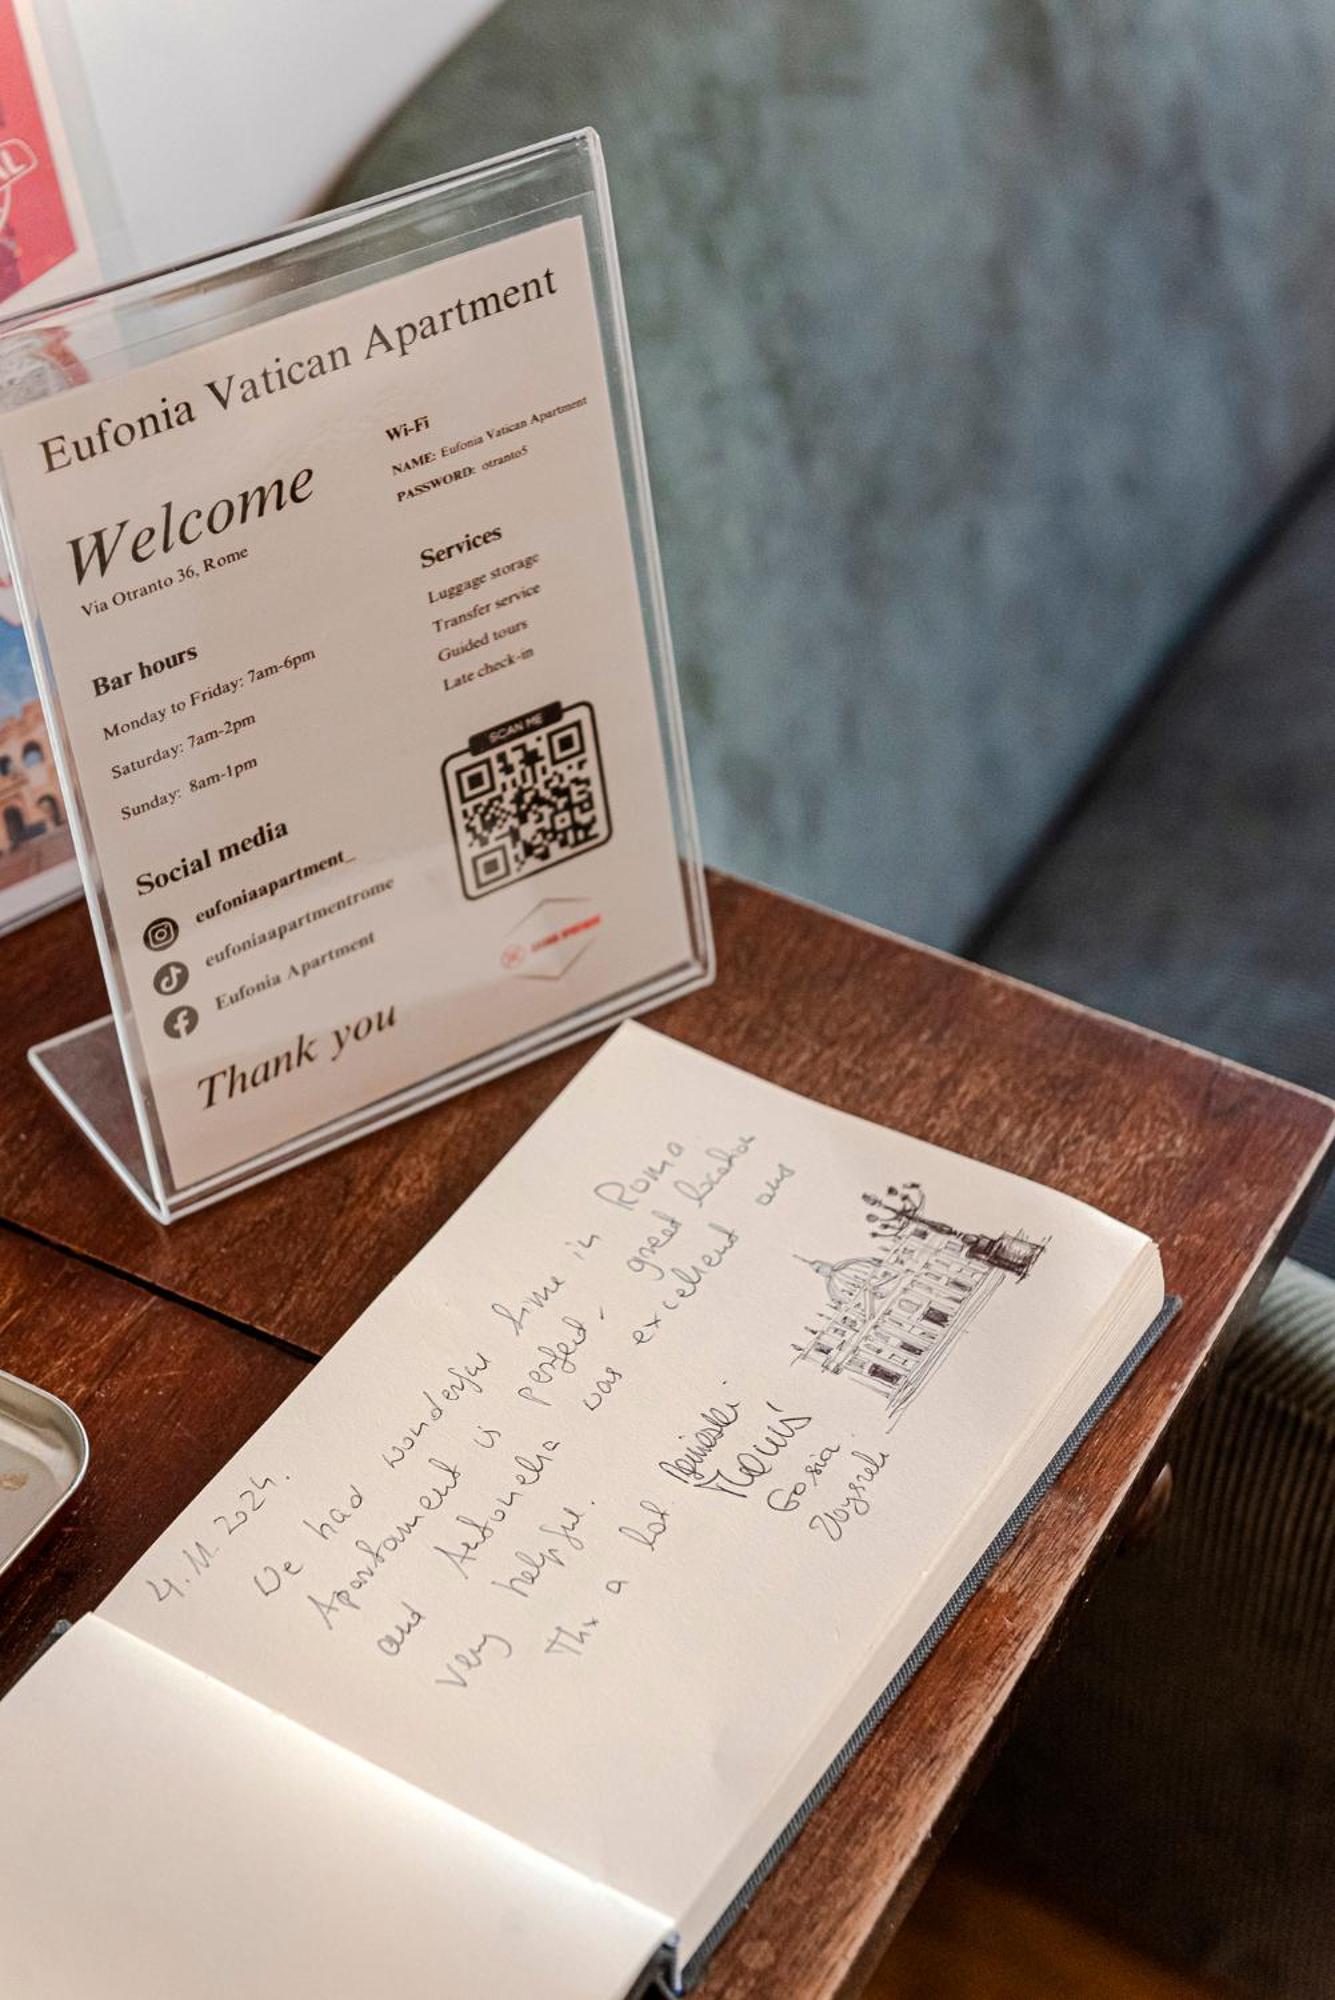 Eufonia Vatican Apartment
Welcome
Via Otranto 36, Rome
Bar hours
Monday to Friday: 7am-6pm
Saturday: 7am-2pm
Sunday: 8am-1pm
Social media
eufoniaapartment_
eufoniaapartmentrome
Eufonia Apartment
Thank you
Wi-Fi
NAME: Eufonia Vatican Apartment
PASSWORD: otranto5
Services
Luggage storage
Transfer service
Guided tours
Late check-in
SCAN ME
4.11.2024.
We had wonderful time in Roma
Apartament is perfect - great location
and Antonella was excellent and
very helpful.
Thx a lot.
Gosia